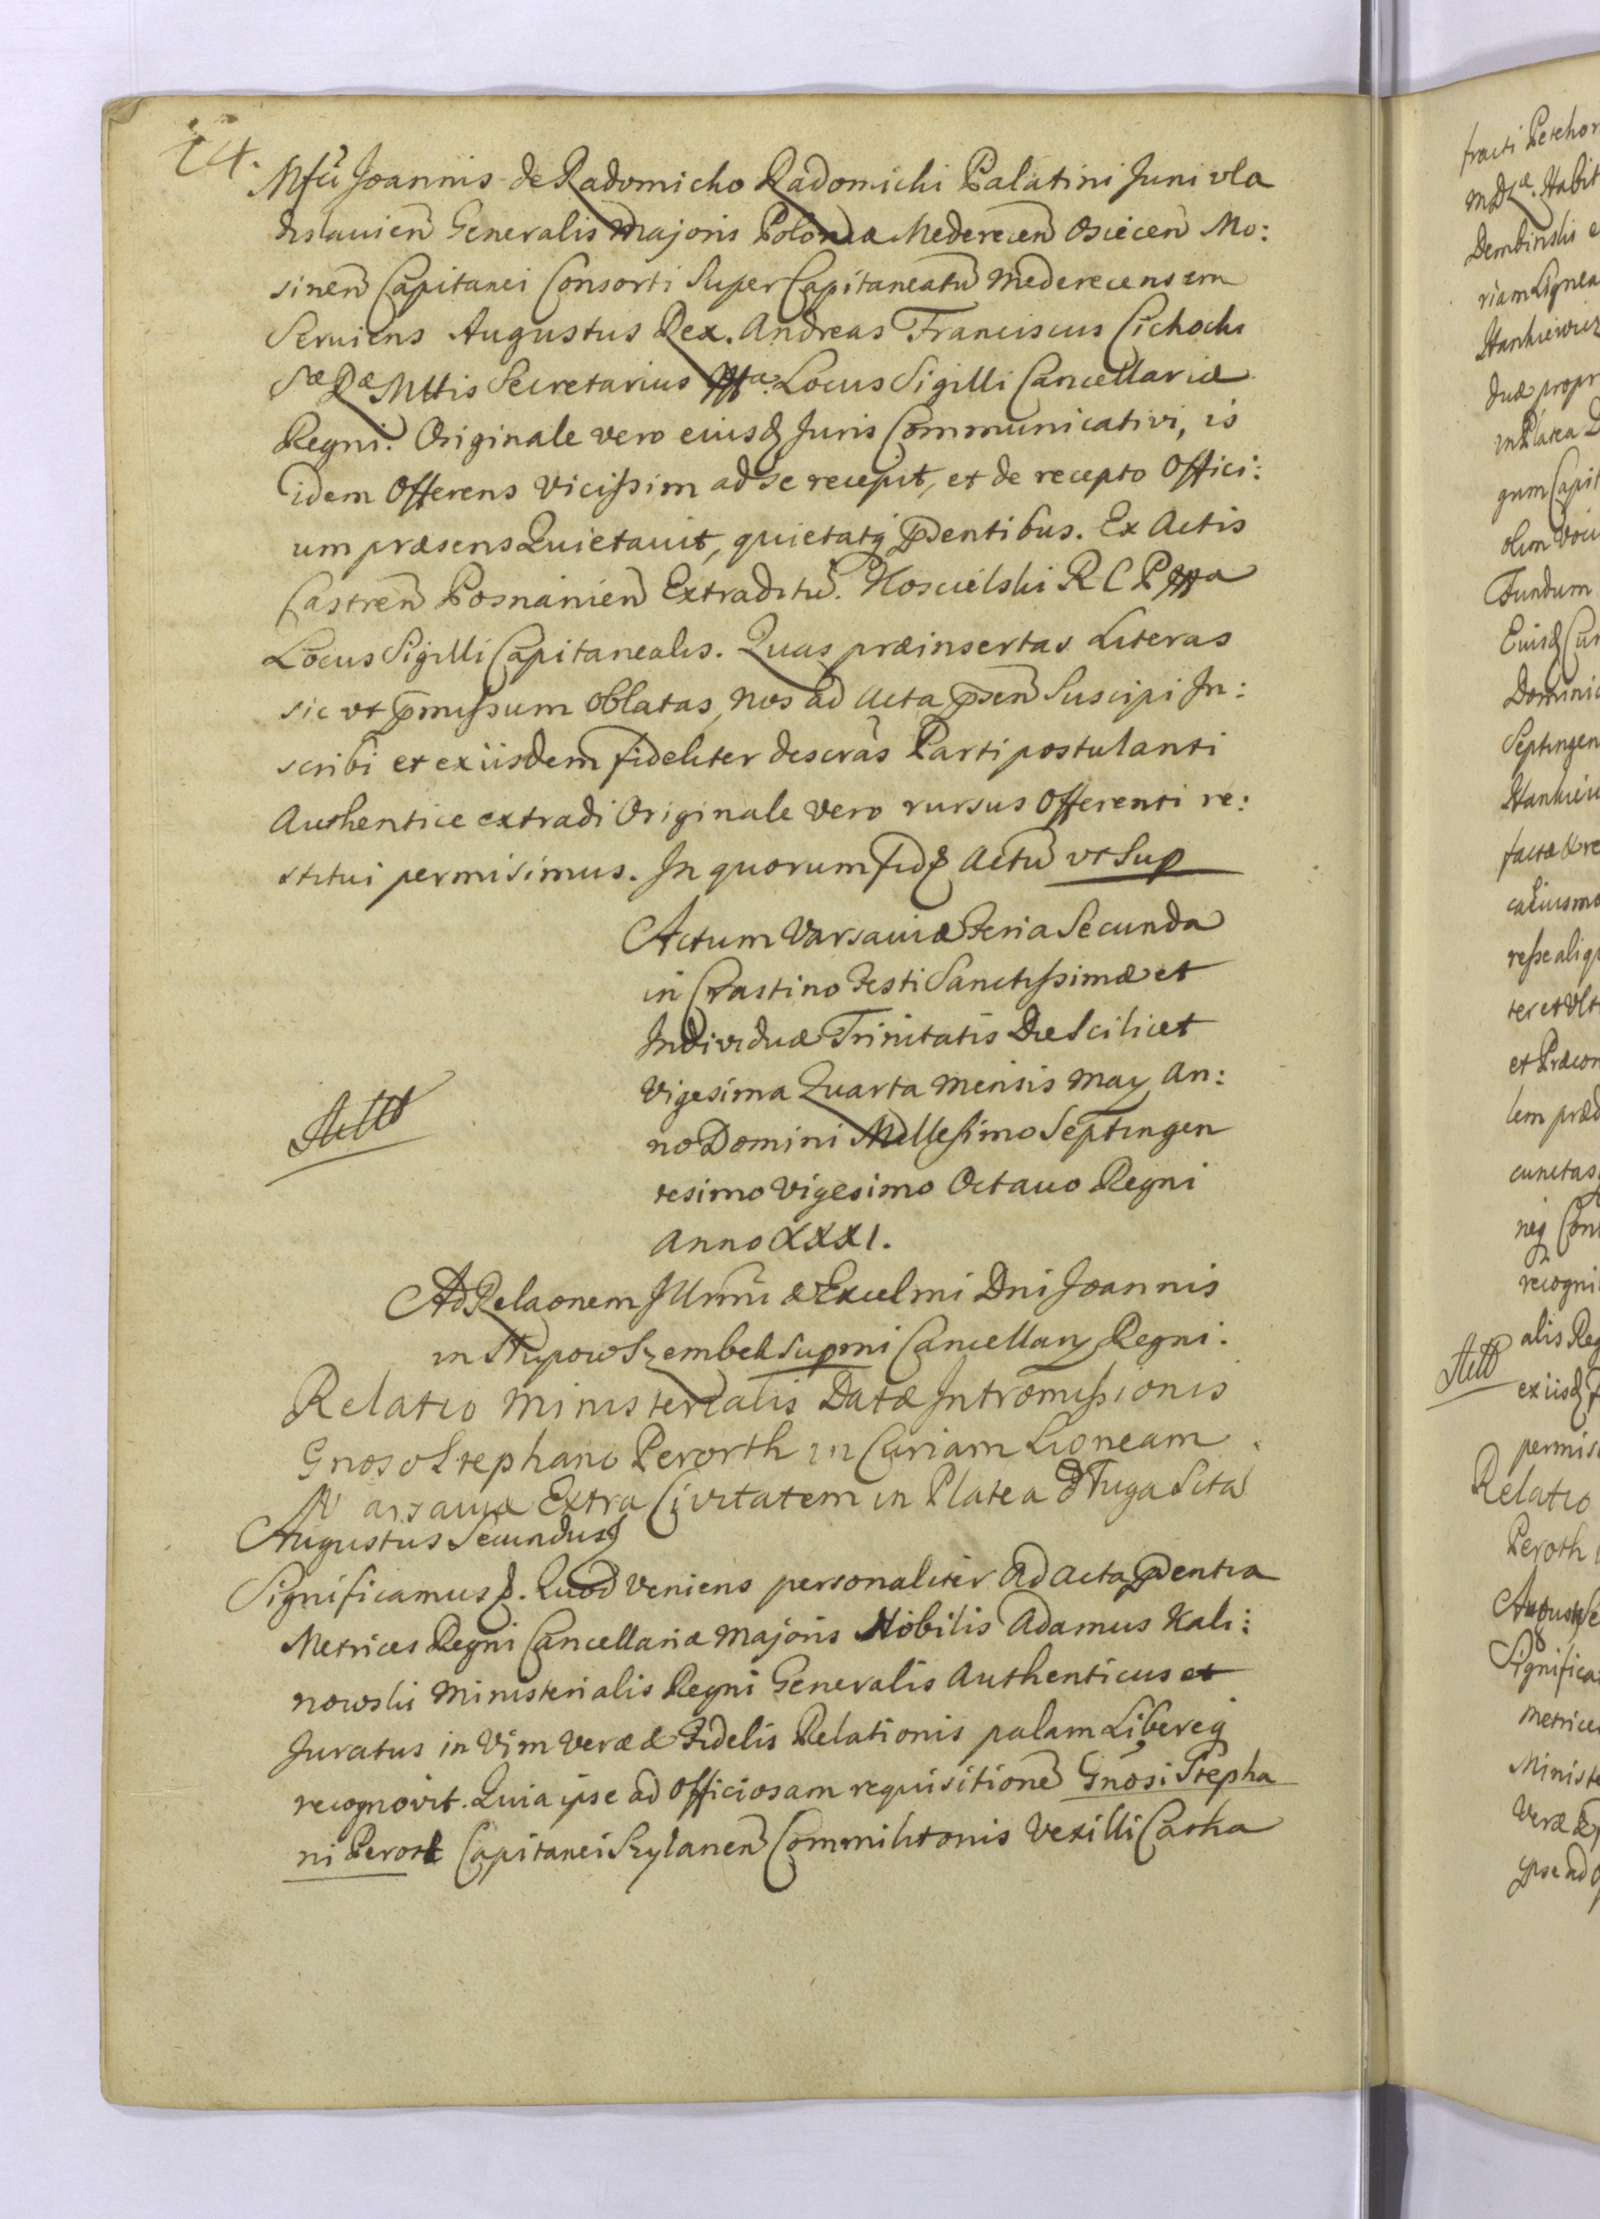 24.
Mfci Joannis de Radomicko Radomicki Palatini Juni vla
dislavien Generalis Majoris Poloniæ Mederecen Osiecen Mo:
sinen Capitanei Consorti Super Capitaneatu Mederecensem
Serviens Augustus Rex. Andreas Franciscus Cichocki
Sæ Ræ Mttis Secretarius mppa. Locus Sigilli Cancellariæ
Regni. Originale vero eiusq Juris Communicativi, is
idem Offerens vicissim ad se recepit, et de recepto Offici:
um præsens Quietavit, quietatq pdentibus. Ex Actis
Castren Posnanien Extraditu. Koscielski R C P mppa
Locus Sigilli Capitanealis. Quas præinsertas Literas
sic ut pmissum oblatas, nos ad Acta psen Suscipi In:
scribi et ex iisdem fideliter descras Parti postulanti
Authentice extradi Originale vero rursus Offerenti re:
stitui permisimus. In quorum fidę Actu ut Sup
Actum Varsaviæ Feria Secunda
in Crastino Festi Sanctissimæ et
Individuæ Trinitatis Die Scilicet
Vigesima Quarta Mensis May An:
no Domini Millesimo Septingen
tesimo Vigesimo Octavo Regni
Anno XXXI.
Ad Relaonem Illrmi & Excelmi Dni Joannis
in Słupow Szembek Supmi Cancellarÿ Regni.
Relatio Ministerialis Datæ Intromissionis
Gnoso Stephano Peroth in Curiam Ligneam
Varsaviæ Extra Civitatem in Platea Długa Sita
Augustus Secundus
Significamus &. Quod veniens personaliter ad Acta pdentia
Metrices Regni Cancellariæ Majoris Nobilis Adamus Kali:
nowski Ministerialis Regni Generalis Authenticus et
Juratus in Vim Veræ & Fidelis Relationis palam Libereq
recognovit. Quia ipse ad officiosam requisitione Gnosi Stepha
ni Perott Capitanei Szylanen Commilitonis Vexilli Casha
fracti
Habit
Dembinski
riam Lignea
Stankiewicz
duæ propr
in Platea
gum Capit
olim
Fundum
Eiusq Cur
Dominic
Septingen
factæ & re
teret
et Præcon
lem præd
cunctas
neq Con
recogni
alis Reg
ex iisq
permis
Relatio
Peroth
Significa
Metrices
Ministe
Veræ &
ipse ad